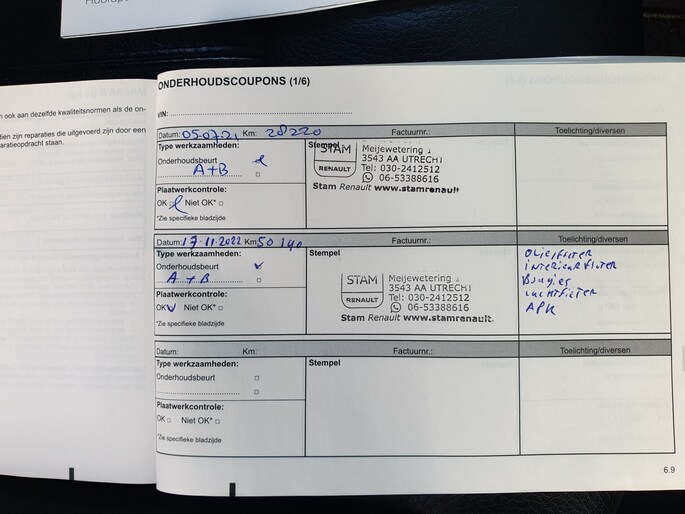 n ook aan dezelfde kwaliteitsnormen als de on-
dien zijn reparaties die uitgevoerd zijn door een
aratieopdracht staan.
ONDERHOUDSCOUPONS (1/6)
VIN:
Datum: 05-07-21 Km: 28220 Factuurnr.: Toelichting/diversen
Type werkzaamheden:
Onderhoudsbeurt
A+B
Plaatwerkcontrole:
OK □ Niet OK* □
*Zie specifieke bladzijde
Stempel
STAM
RENAULT
Meijewetering
3543 AA UTRECHT
Tel: 030-2412512
06-53388616
Stam Renault www.stamrenault
Datum: 17-11-2022 Km 50140 Factuurnr.: Toelichting/diversen
Type werkzaamheden:
Onderhoudsbeurt
A+B
Plaatwerkcontrole:
OK Niet OK* □
*Zie specifieke bladzijde
Stempel
STAM
RENAULT
Meijewetering
3543 AA UTRECHT
Tel: 030-2412512
06-53388616
Stam Renault www.stamrenault.
OLIEFILTER
INTERIEURFILTER
Bougies
LUCHTFILTER
APK
Datum: Km: Factuurnr.: Toelichting/diversen
Type werkzaamheden:
Onderhoudsbeurt □
□
Plaatwerkcontrole:
OK □ Niet OK* □
*Zie specifieke bladzijde
Stempel
6.9